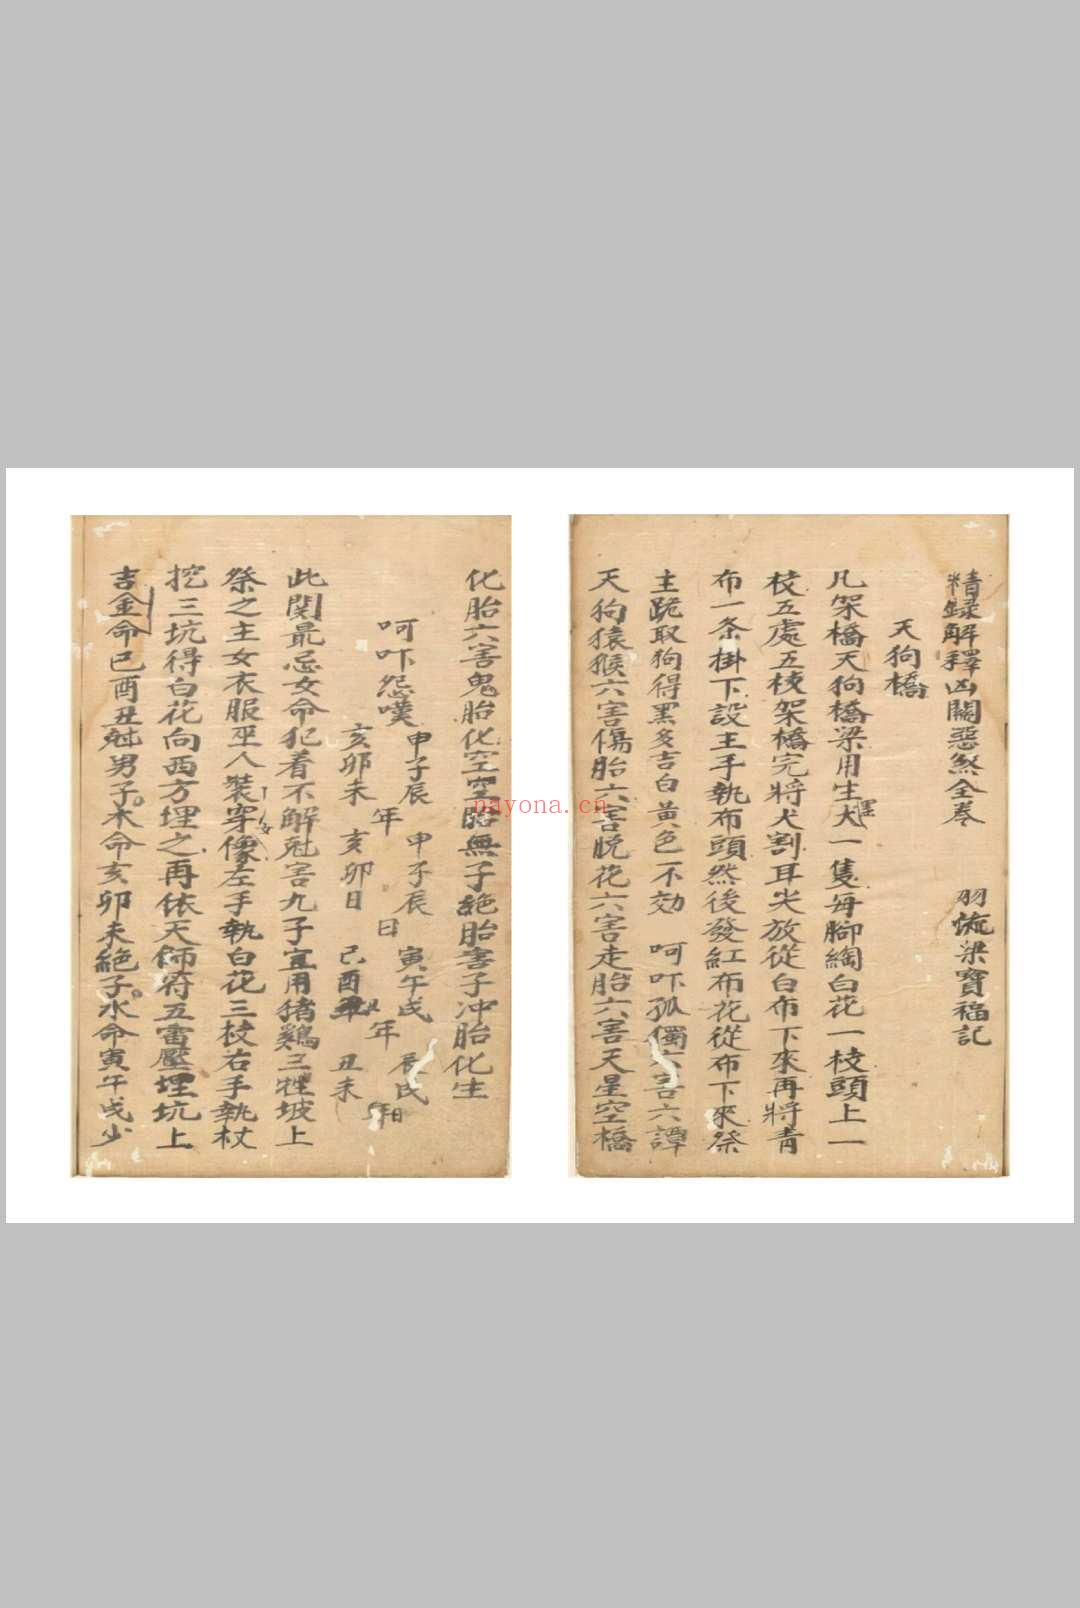 精録解釋凶關惡煞全卷 羽流梁寶福記
天狗橋
凡架橋天狗橋梁用生犬一隻每腳綯白花一枝頭上一
枝五處五枝架橋完將犬割耳尖放從白布下來再將青
布一条掛下設主手執布頭然後發紅布花從布下來祭
主跪取狗得黑多吉白黄色不効 呵吓孤獨六害六譚
天狗猿猴六害傷胎六害脱花六害走胎六害天星空橋
化胎六害鬼胎化空空胎無子絶胎害子冲胎化生
呵吓怨嘆 申子辰 年 申子辰 日 寅午戌 年 辰戌 日
亥卯未 亥卯日 己酉 丑 丑未
此関最忌女命犯着不解尅害九子宜用猪鷄三牲坡上
祭之主女衣服巫人裝穿像左手執白花三枝右手執杖
挖三坑得白花向西方埋之再依天師符五雷壓埋坑上
吉金命巳酉丑尅男子木命亥卯未絶子水命寅午戌少
nayona.cn